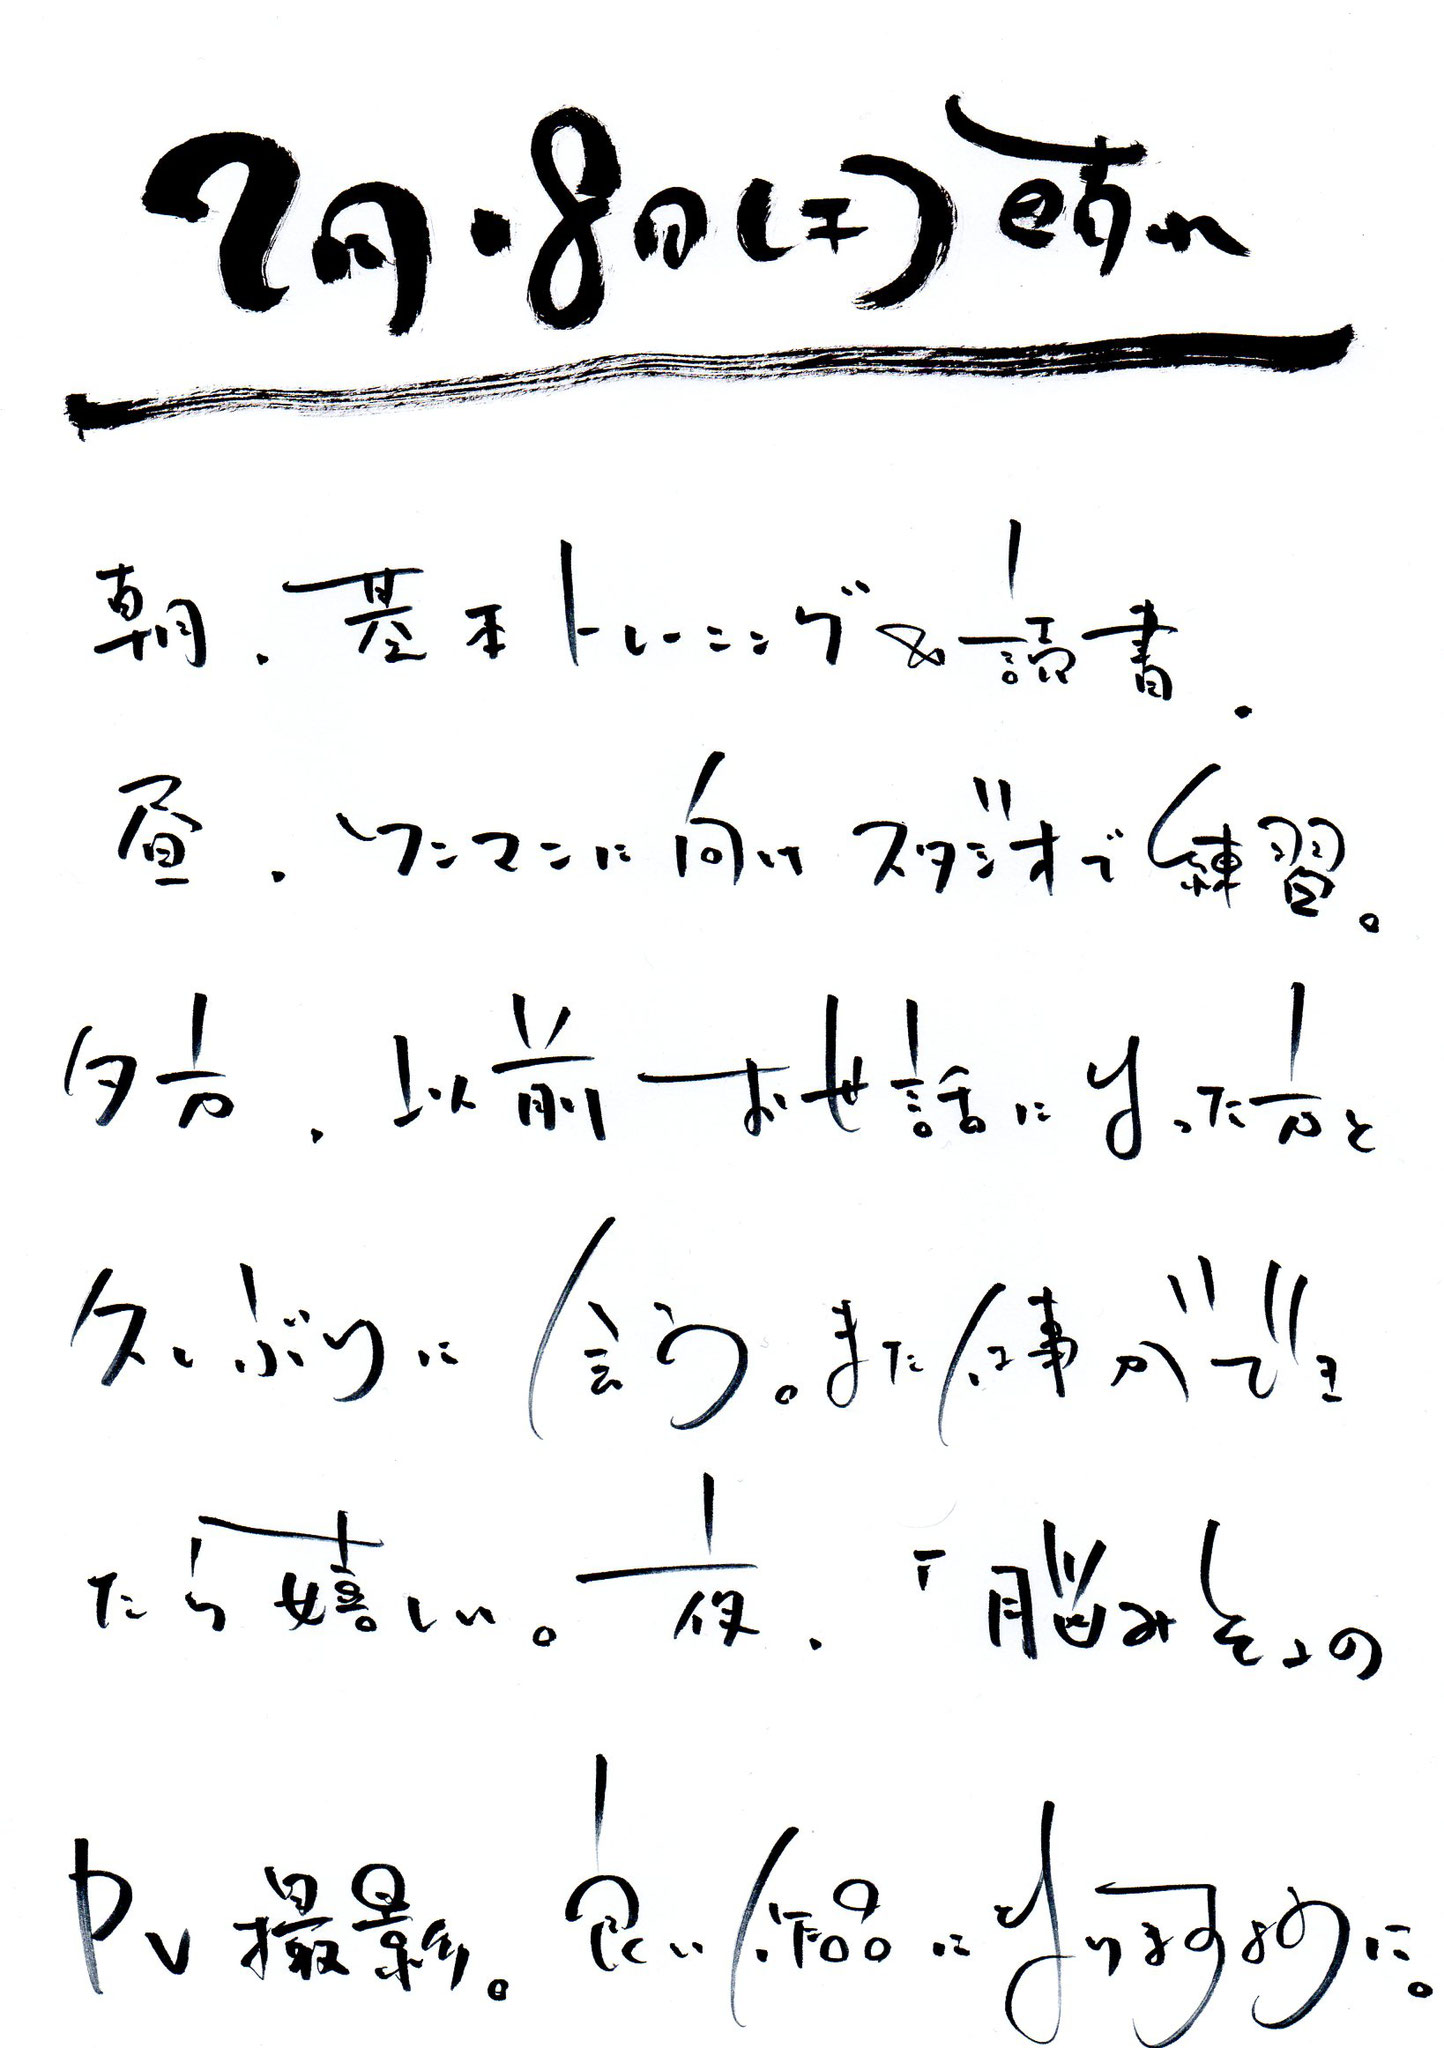 2月・8日(土)晴れ
朝、基本トレーニング&読書、
昼、ワンマンに向けスタジオで練習。
夕方、以前お世話になった方と
久しぶりに会う。また仕事ができ
たら嬉しい。夜、「脳みそ」の
PV撮影。良い作品になりますように。